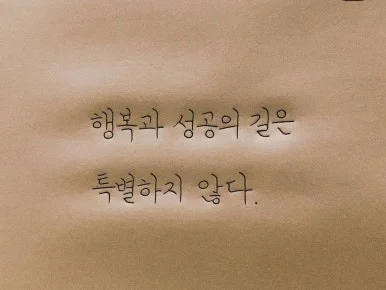 행복과 성공의 길은
특별하지 않다.